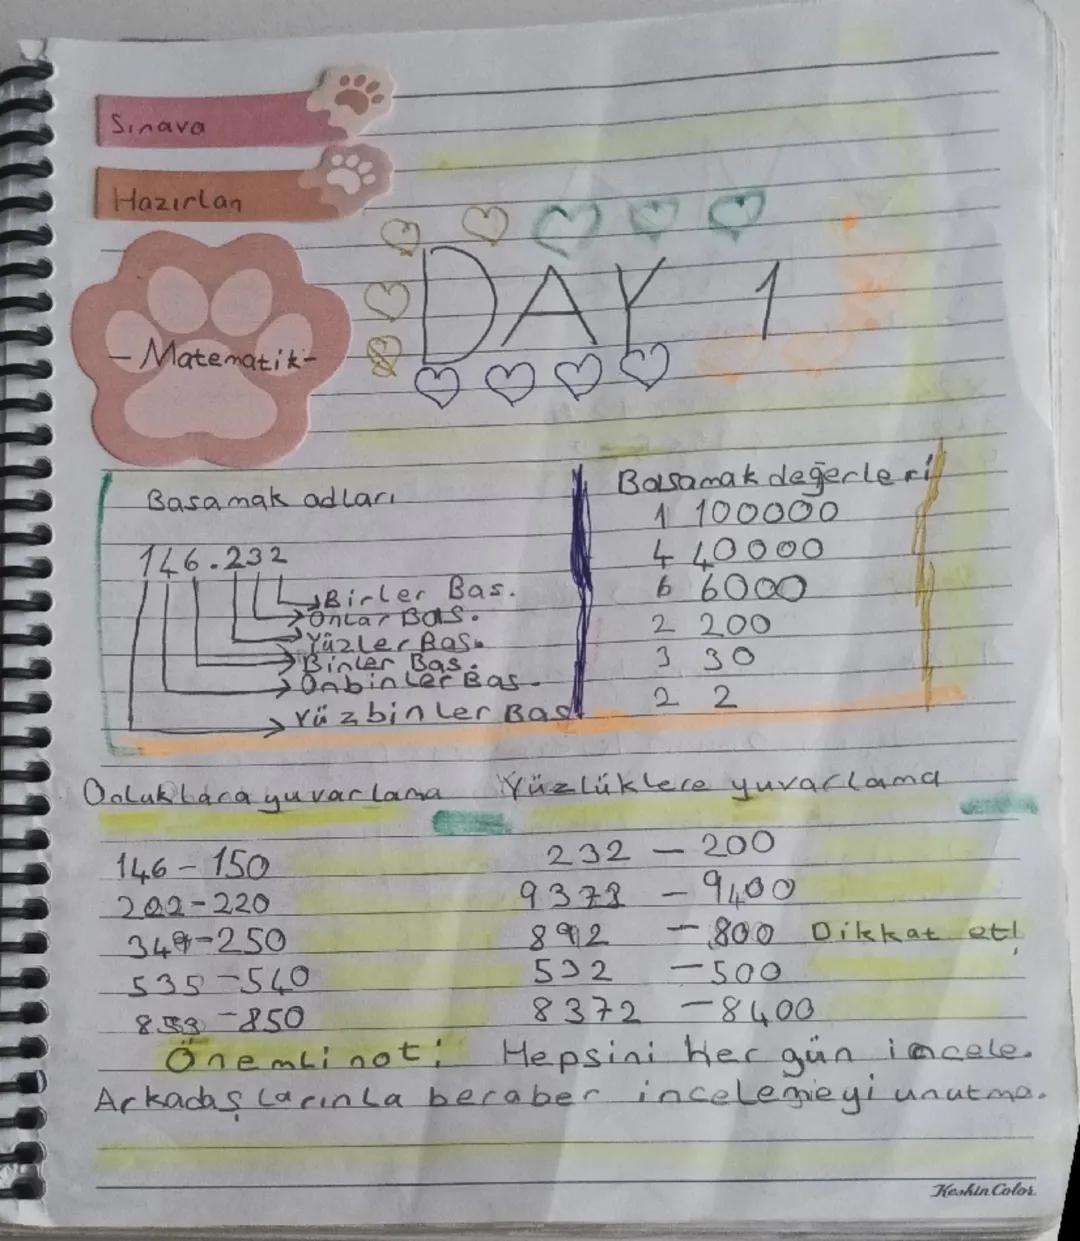 Sınava
Hazırlan
- Matematik -
DAY 1
Basamak adları
146.232
Birler Bas.
Onlar Bas.
Yüzler Bas.
Binler Bas.
Onbinler Bas.
Yüzbinler Bas.
Basamak değerleri
1 100000
4 40000
6 6000
2 200
3 30
2 2
Onluklara yuvarlama
146 - 150
- 220
- 250
535 - 540
853 - 850
Yüzlüklere yuvarlama
232 - 200
9378 - 9400
892 - 800 Dikkat et!
532 - 500
8372 - 8400
Önemli not: Hepsini Her gün incele.
Arkadaşlarınla beraber incelemeyi unutma.
Keskin Color